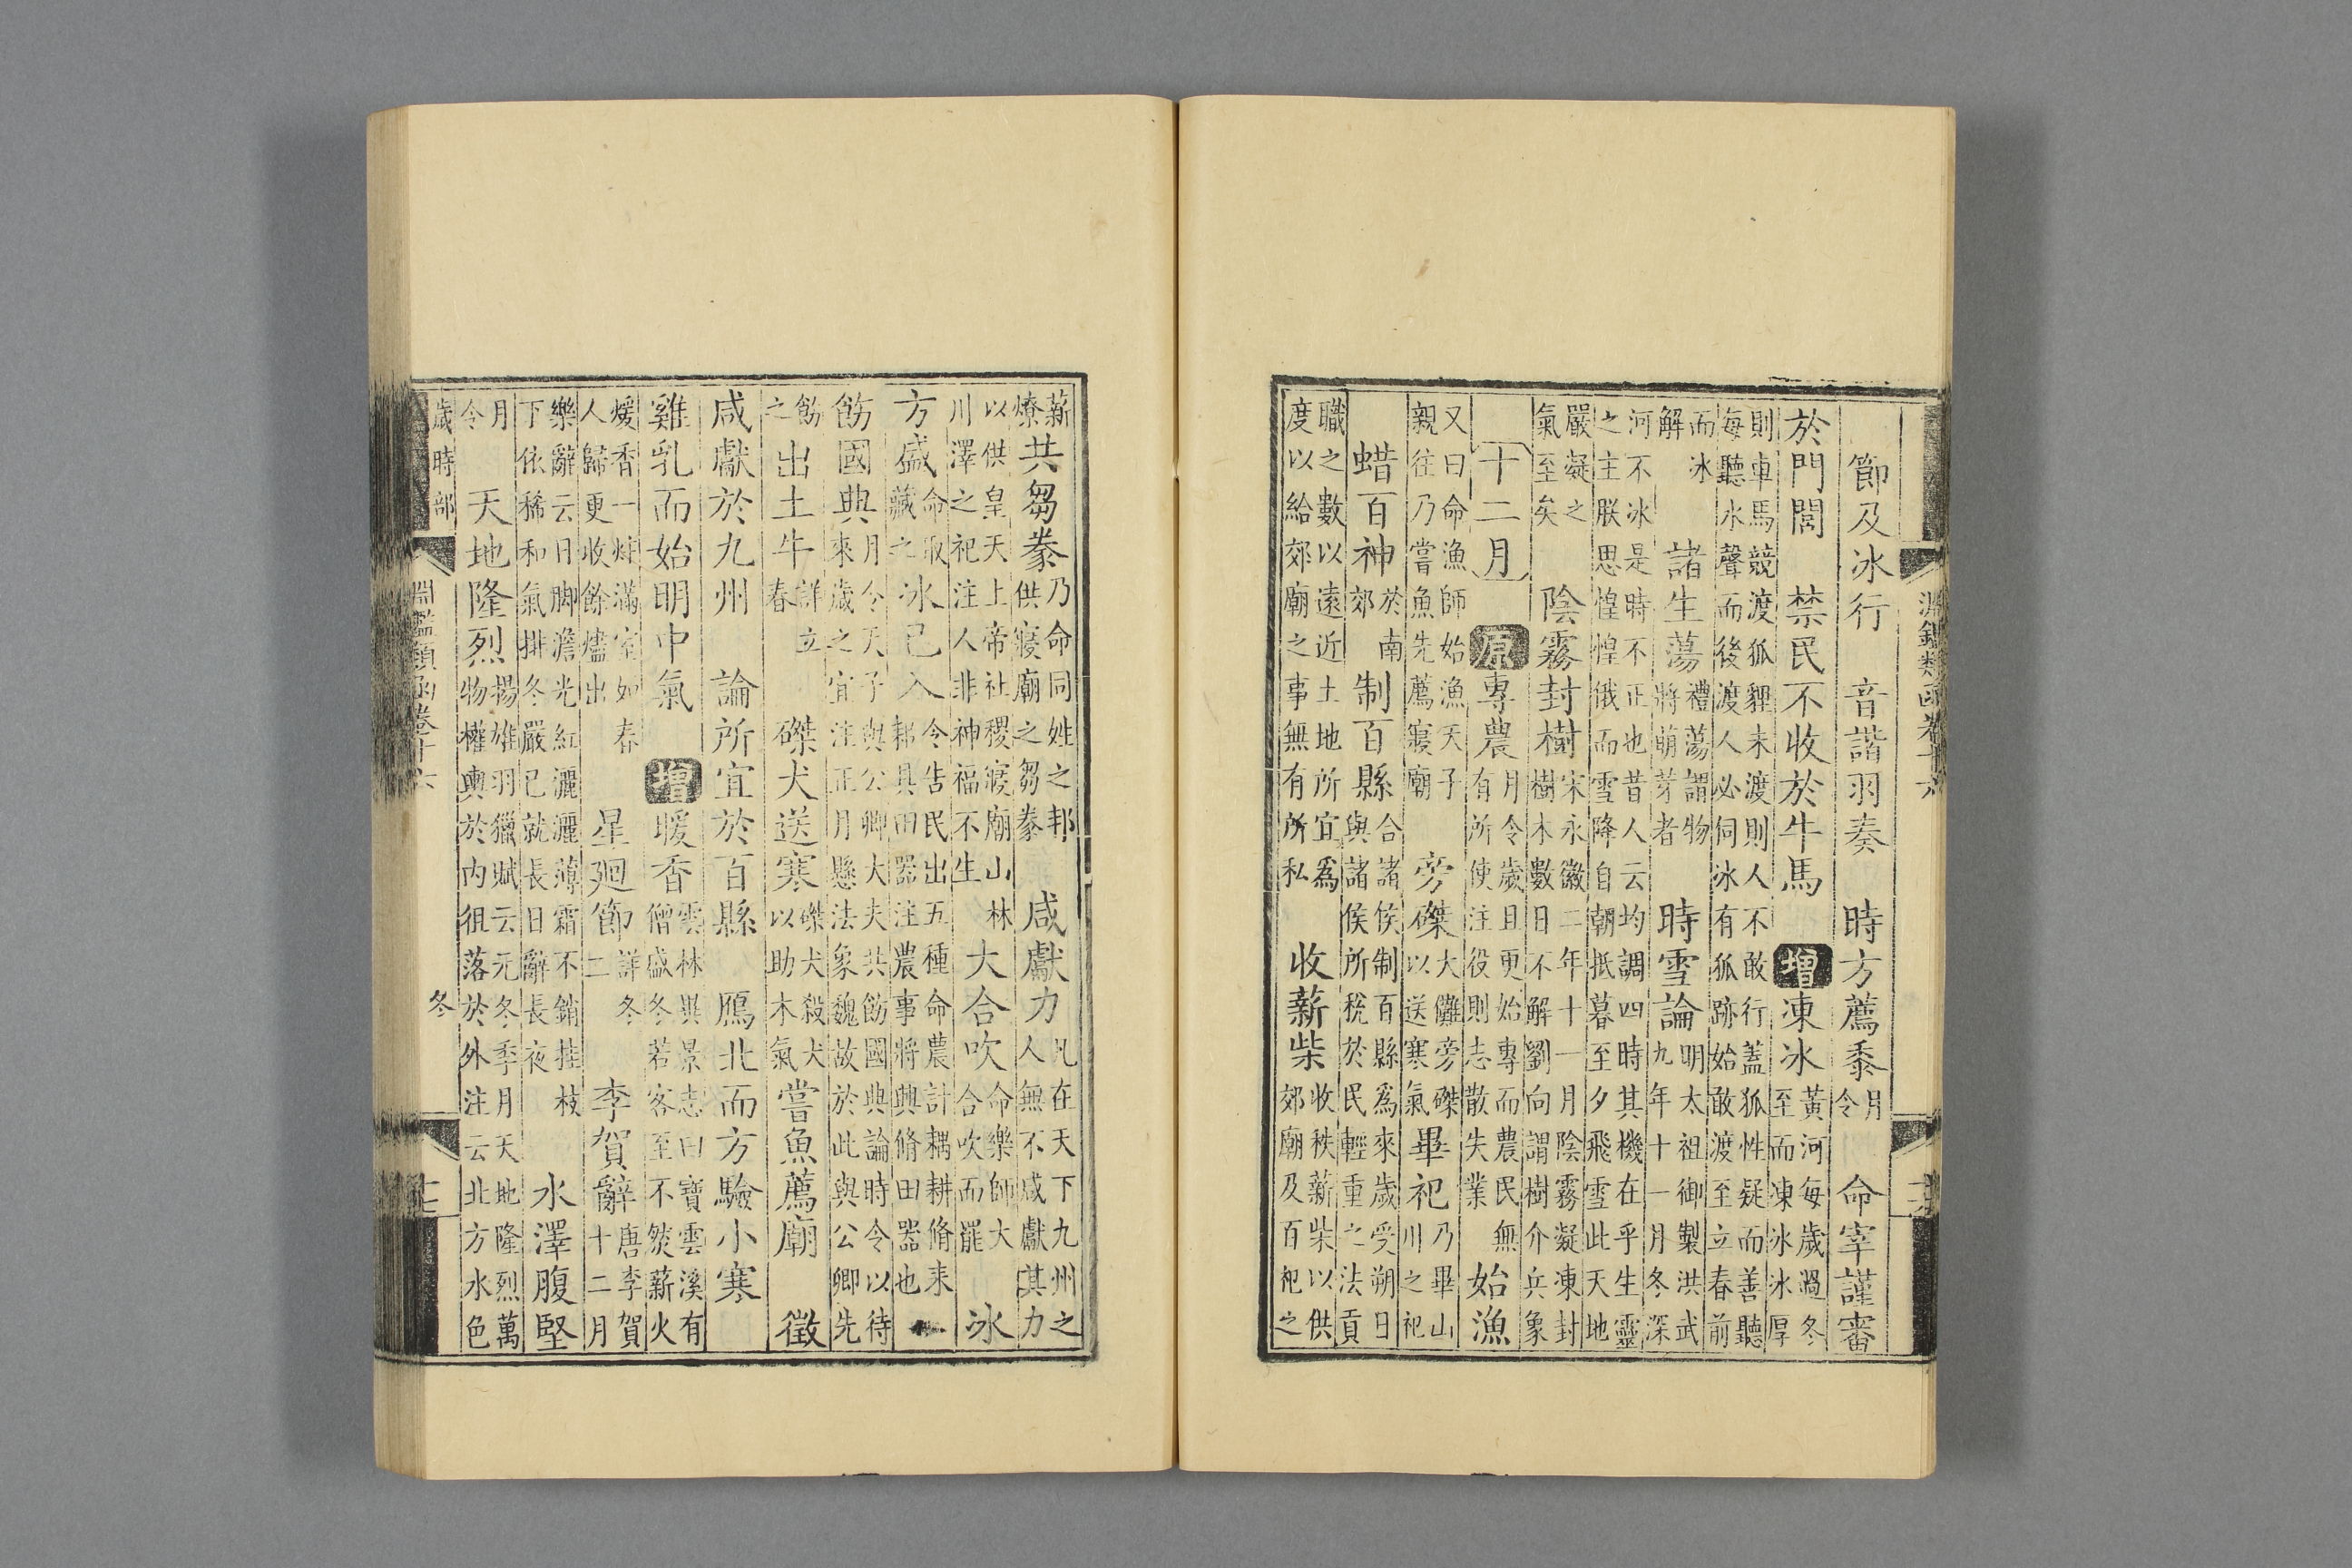 淵鑑類函卷十六
節及冰行 音諧羽奏 時方薦黍月令 命宰謹審
於門閭 禁民不收於牛馬 增凍冰黃河每歲過冬至而凍冰冰厚
則車馬競渡狐貍未渡則人不敢行蓋狐性疑而善聽每聽水聲而後渡人必伺冰有狐跡始敢渡至立春前
而冰解 諸生蕩禮蕩謂物將萌芽者 時雪論明太祖御製洪武九年十一月冬深
河不冰是時不正也昔人云均調四時其機在乎生靈之主朕思惶惶俄而雪降自朝抵暮至夕飛雪此天地
嚴凝之氣至矣 陰霧封樹宋永徽二年十一月陰霧凝凍封樹木數日不解劉向謂樹介兵象
十二月 原專農月令歲且更始專而農民無有所使注役則志散失業 始漁
又曰命漁師始漁天子親往乃嘗魚先薦寢廟 旁磔大儺旁磔以送寒氣 畢祀乃畢山川之祀
蜡百神於南郊 制百縣合諸侯制百縣為來歲受朔日與諸侯所稅於民輕重之法貢
職之數以遠近土地所宜爲度以給郊廟之事無有所私 收薪柴收秩薪柴以供郊廟及百祀之
薪燎共芻豢乃命同姓之邦供寢廟之芻豢 咸獻力凡在天下九州之人無不咸獻其力
以供皇天上帝社稷寢廟山林川澤之祀注人非神福不生 大合吹命樂師大合吹而罷 冰
方盛命取藏之 冰已入令告民出五種命農計耦耕脩耒耜具田器注農事將興脩田器也
飭國典月令天子與公卿大夫共飭國典論時令以待來歲之宜注正月懸法象魏故於此與公卿先
飭之 出土牛詳立春 磔犬送寒磔犬殺犬以助木氣 嘗魚薦廟 徵
咸獻於九州 論所宜於百縣 鴈北而方驗小寒
雞乳而始明中氣 增暖香雲林異景志曰寶雲溪有僧盛冬若客至不然薪火
煖香一炷滿室如春人歸更收餘燼出 星廻節詳冬二 李賀辭唐李賀十二月
樂辭云日脚澹光紅灑灑薄霜不銷挂枝下依稀和氣排冬嚴已就長日辭長夜 水澤腹堅
月令 天地隆烈揚雄羽獵賦云元冬季月天地隆烈萬物權輿於內徂落於外注云北方水色
歲時部 淵鑑類函卷十六 冬